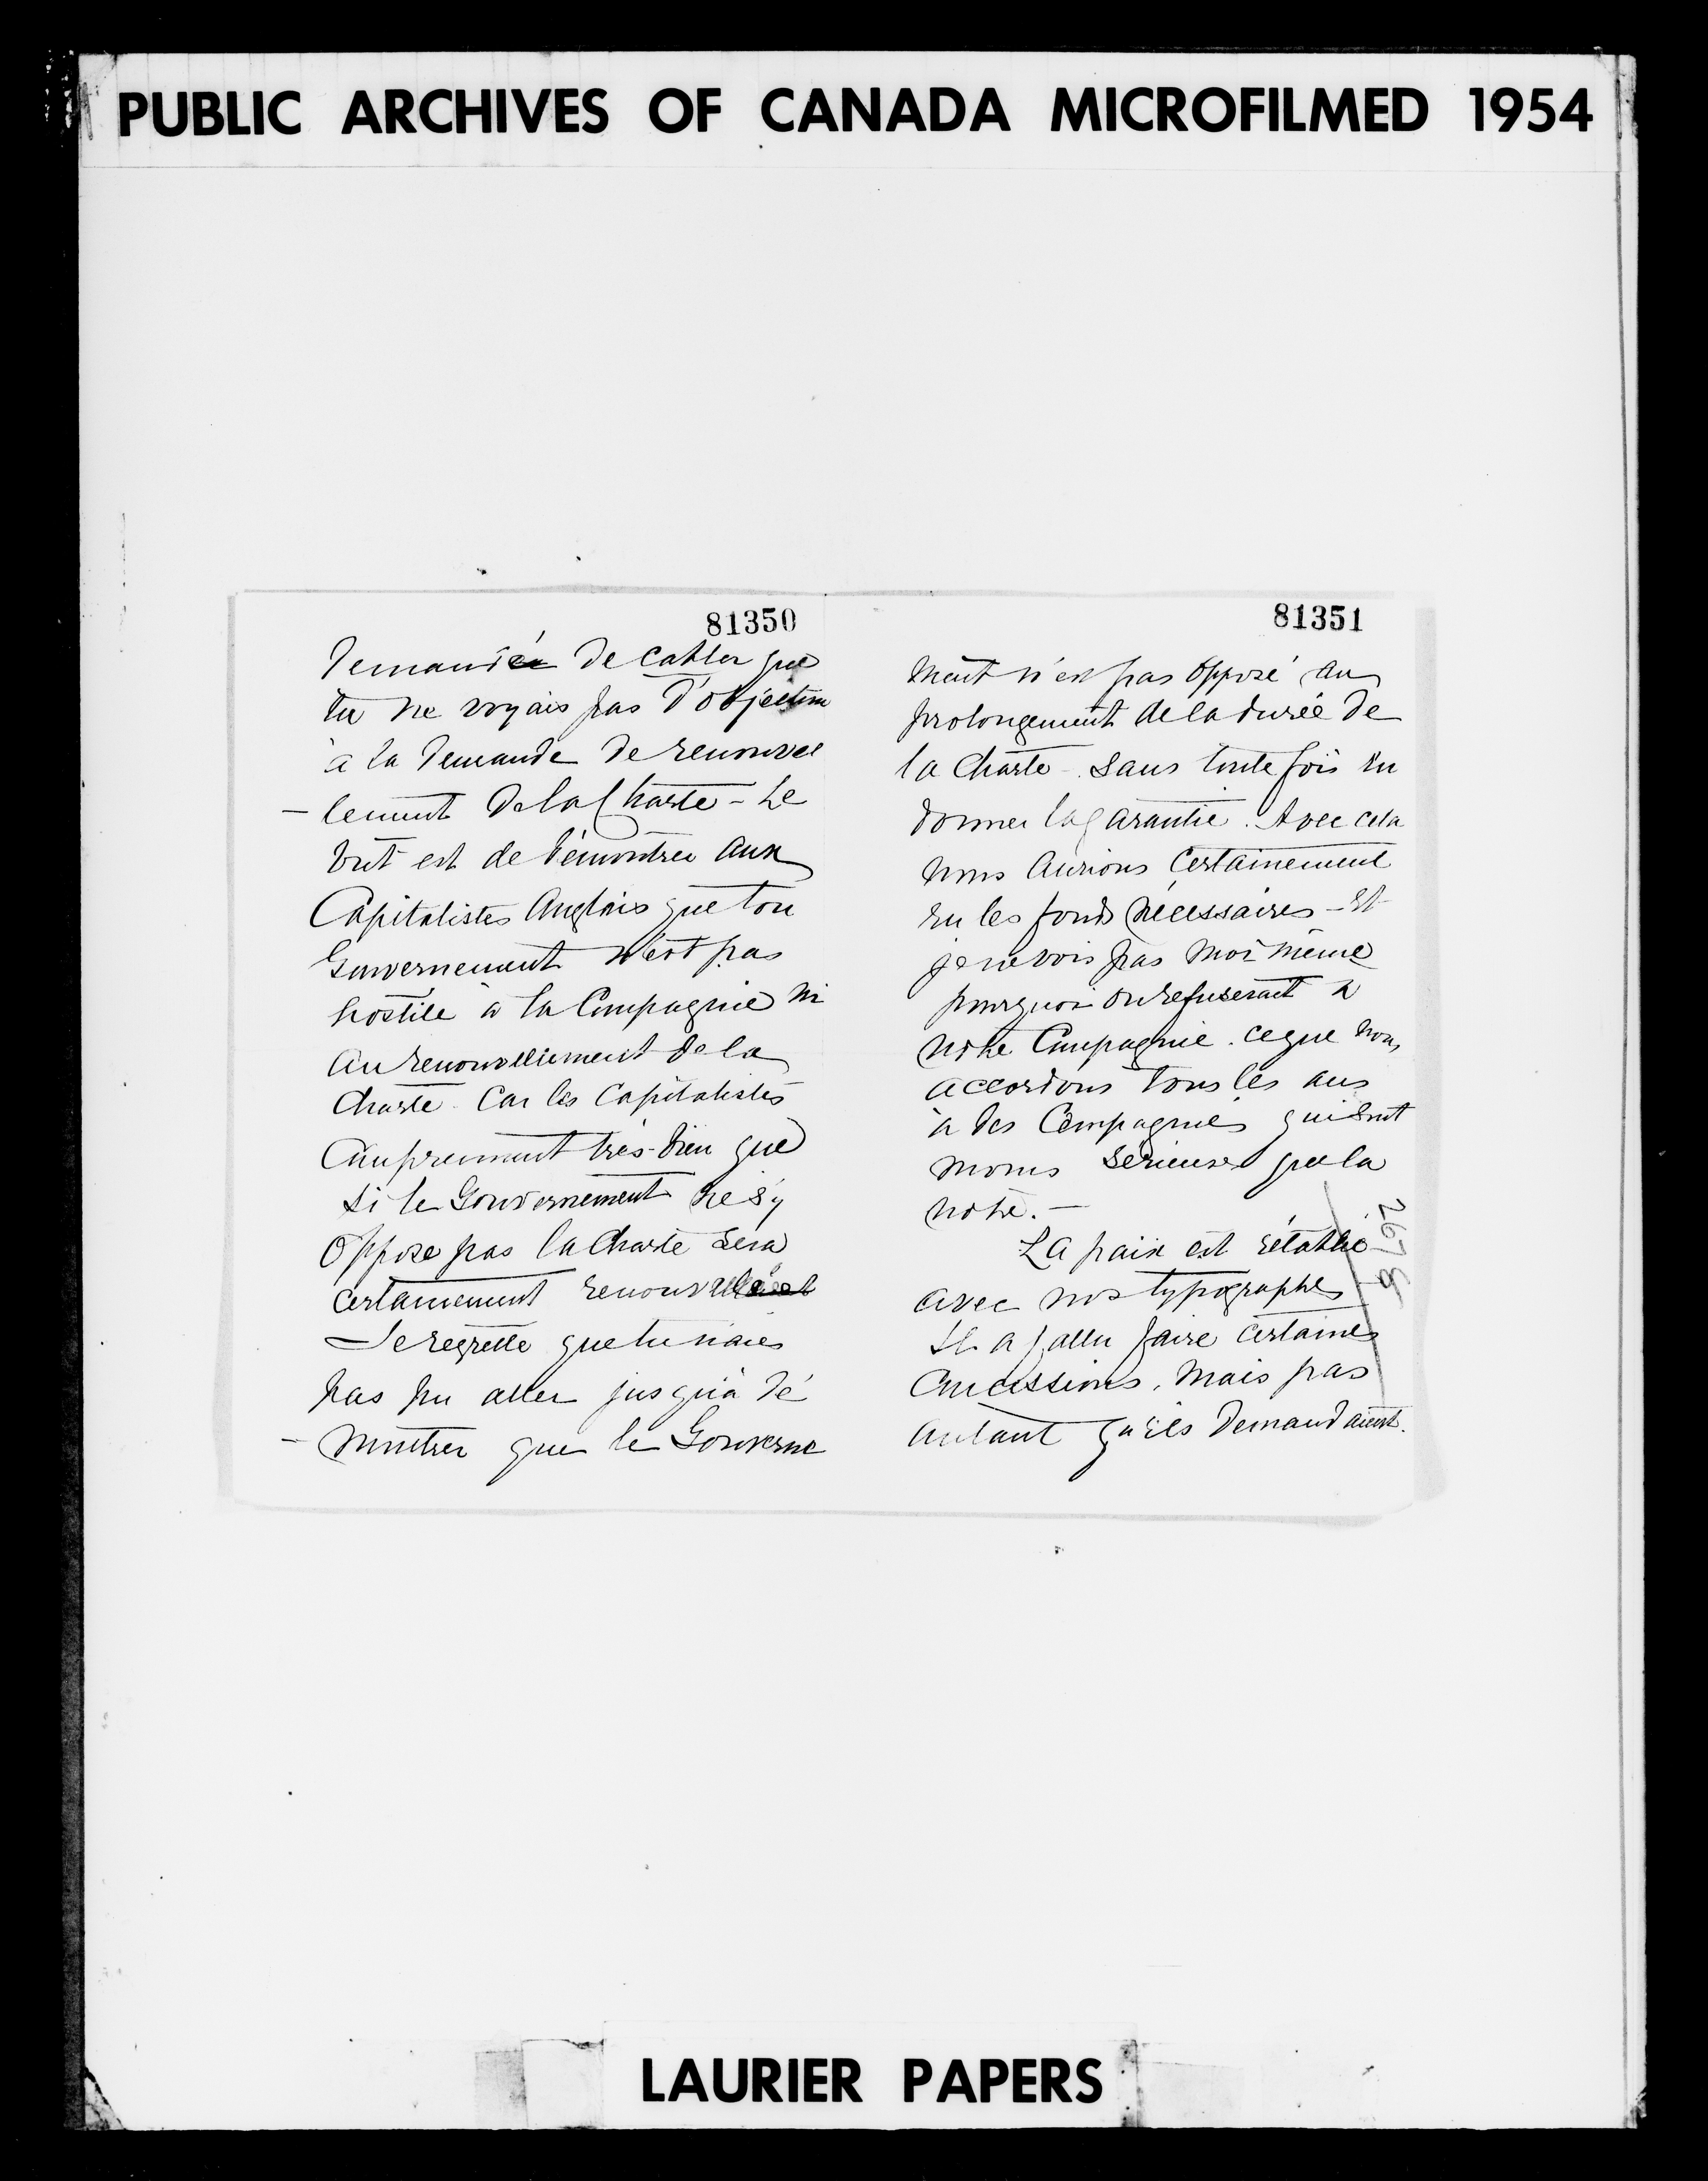 PUBLIC ARCHIVES OF CANADA MICROFILMED 1954
81350
demandé de cabler que
tu ne voyais pas d'objection
à la demande de renouvel
- lement de la Charte - Le
but est de démontrer aux
Capitalistes Anglais que ton
Gouvernement n'est pas
hostile à la Compagnie ni
au renouvellement de la
Charte. Car les Capitalistes
Comprennent très-bien que
si le Gouvernement ne s'y
oppose pas la Charte sera
certainement renouvelée
Je regrette que tu n'aies
pas pu aller jusqu'à dé
- montrer que le Gouverne
81351
ment n'est pas opposé au
prolongement de la durée de
la Charte - sans toute fois en
donner la garantie. Avec cela
nous aurions certainement
eu les fonds nécessaires - Et
je ne vois pas moi même
pourquoi on refuserait à
notre Compagnie. ce que nous
accordons tous les ans
à des Compagnies qui sont
moins sérieuses que la
notre. -
La paix est rétablie
avec nos typographes
Il a fallu faire certaines
Concessions, mais pas
autant qu'ils demandaient.
LAURIER PAPERS